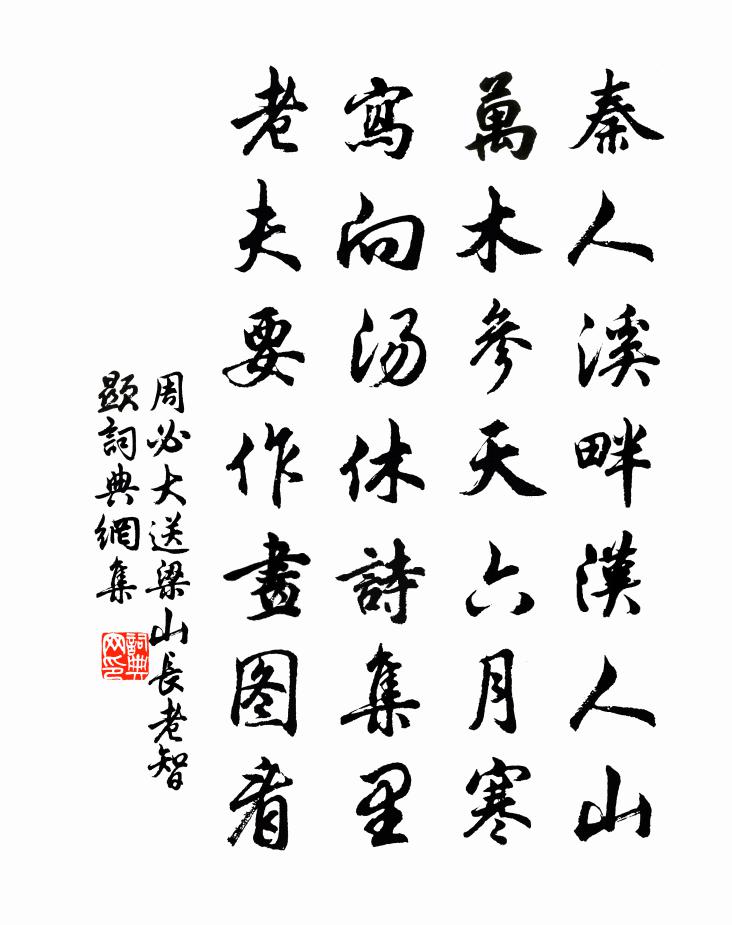 秦人溪畔漢人山
萬木參天六月寒
寫向汤休詩集里
老夫要作畫图看
周必大送梁山長老智
顕詞典網集
詞典网印